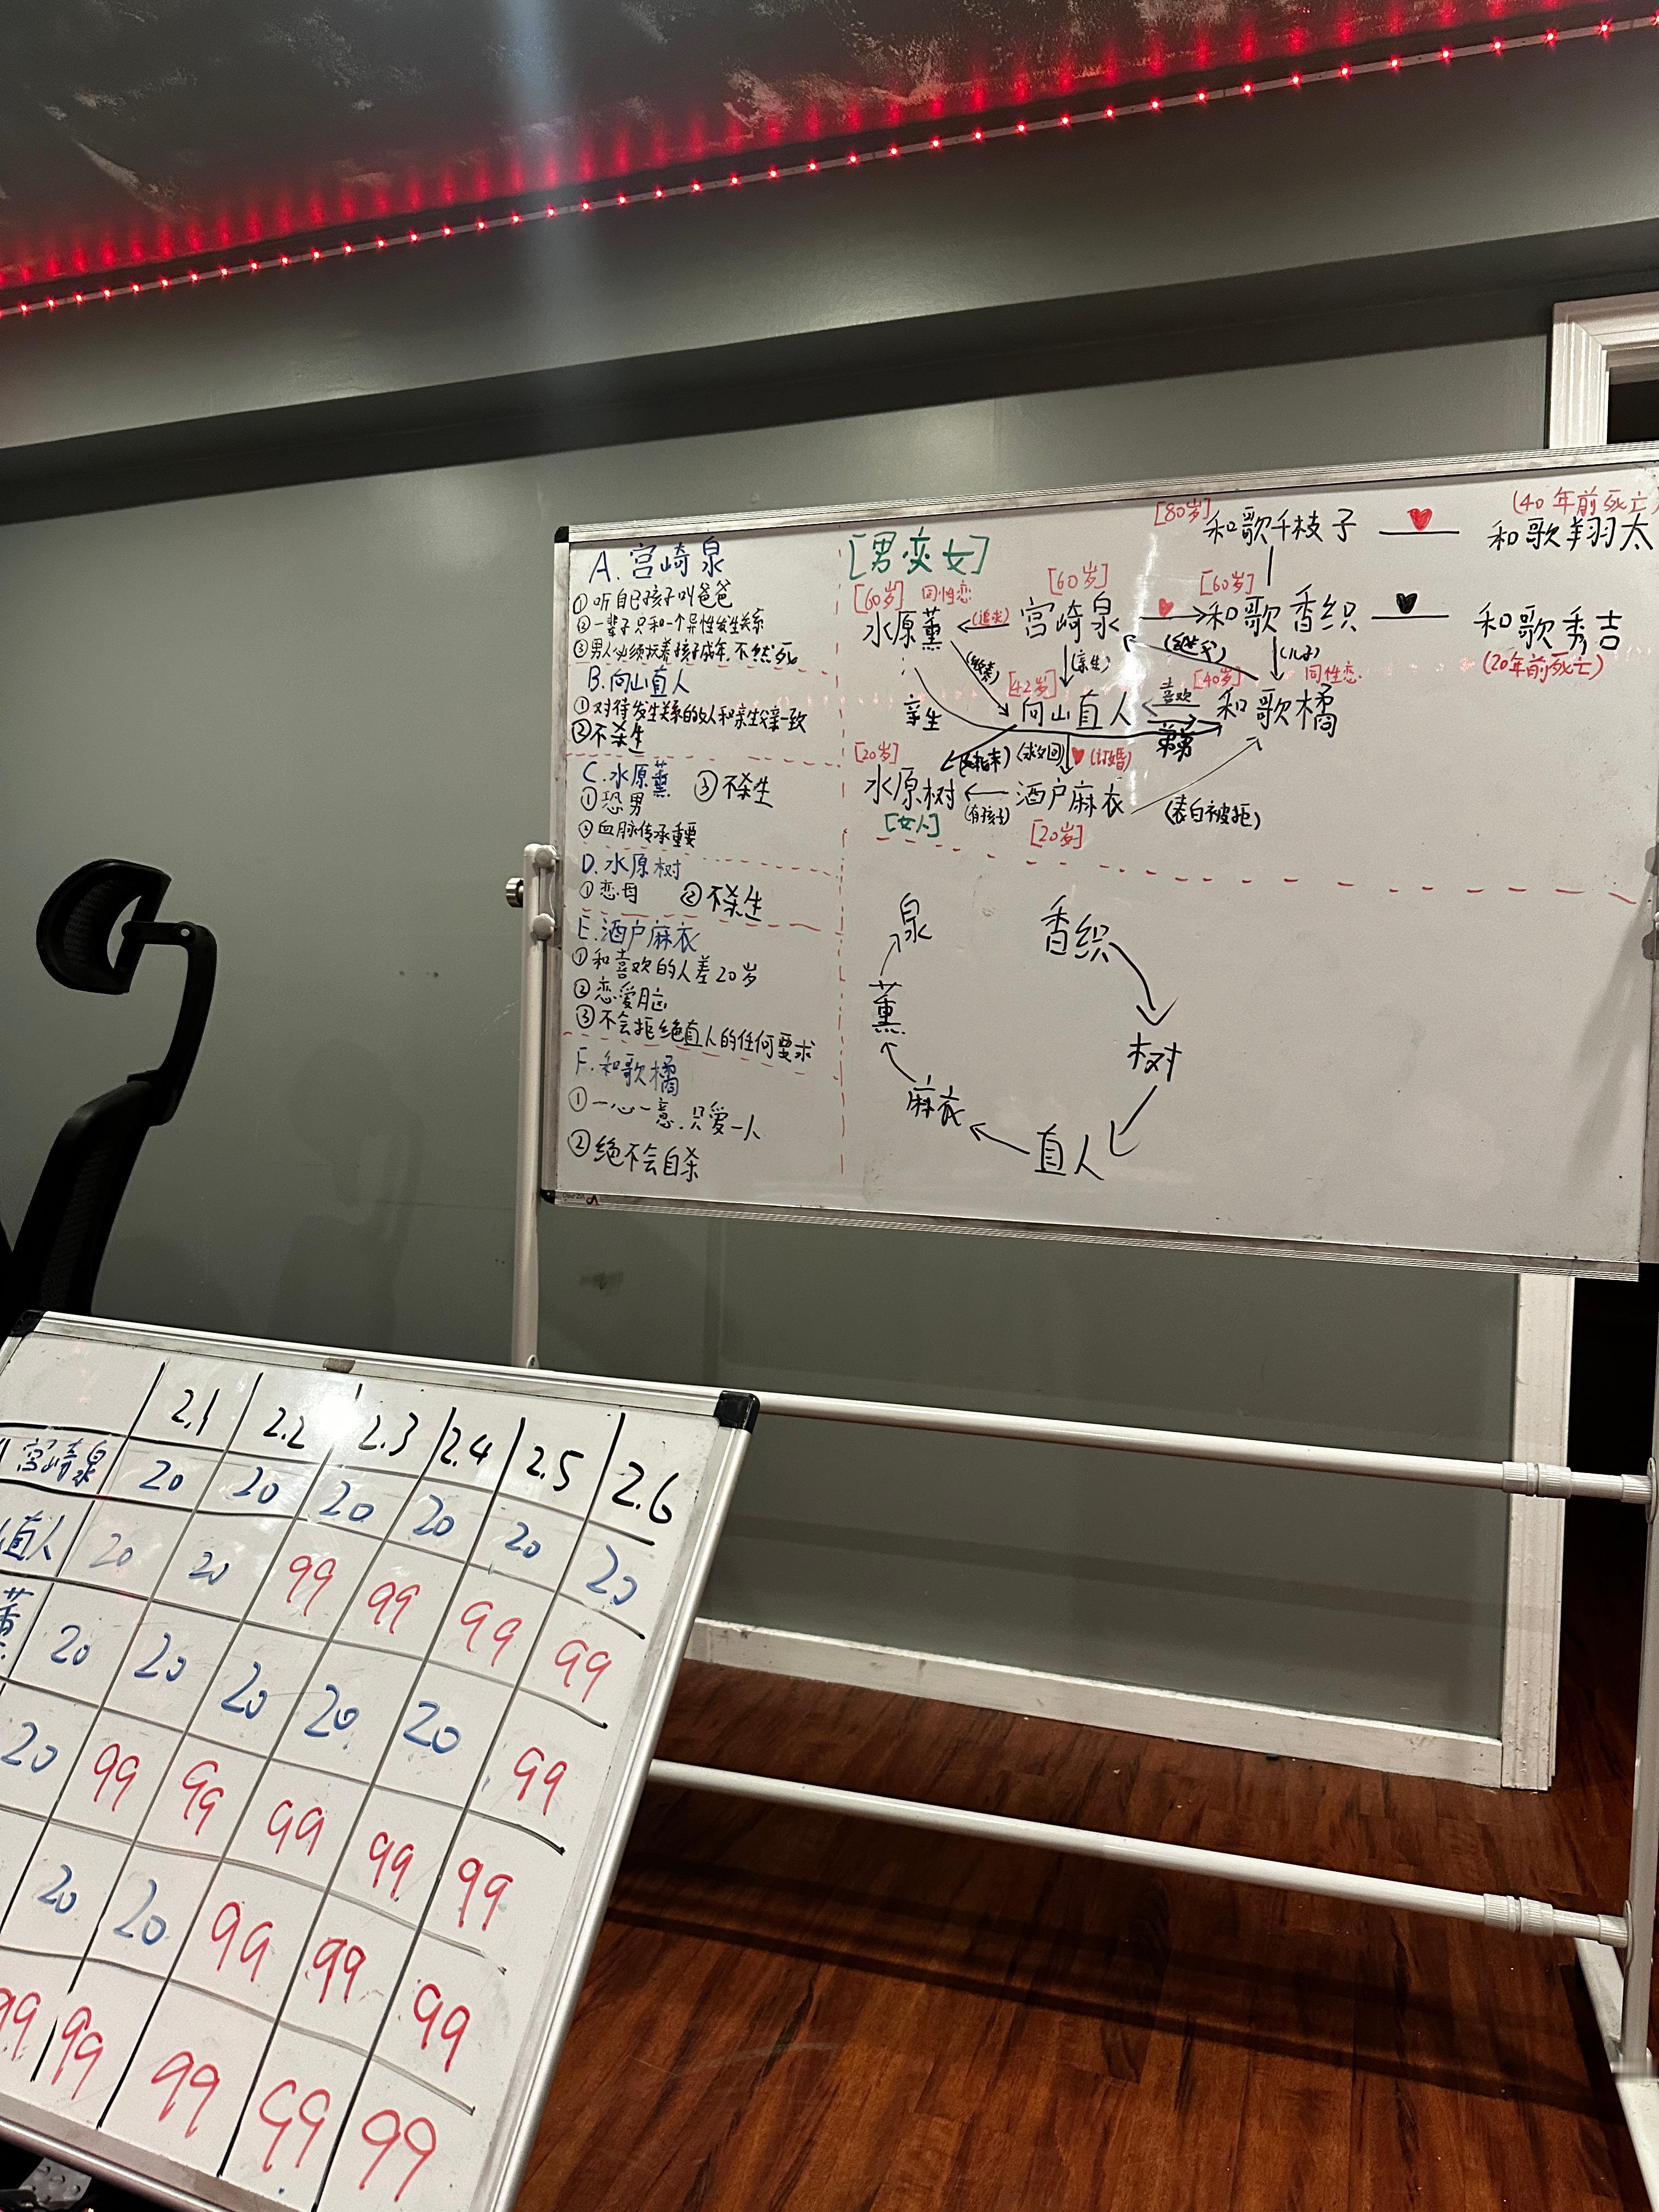 A. 宫崎泉
① 听自己孩子叫爸爸
② 一辈子只和一个异性发生关系
③ 男人必须抚养孩子成年,不然死
B. 向山直人
① 对待发生关系的女人和亲生父亲一致
② 不杀生
C. 水原薰 ③ 不杀生
① 恐男
② 血脉传承重要
D. 水原树
① 恋母 ② 不杀生
E. 酒户麻衣
① 和喜欢的人差20岁
② 恋爱脑
③ 不会拒绝直人的任何要求
F. 和歌橘
① 一心一意,只爱一人
② 绝不会自杀
[男变女]
[80岁] 和歌千枝子 (40年前死亡) 和歌翔太
[60岁] 同性恋 水原薰
(追求)
[60岁] 宫崎泉
[60岁] 和歌香织
和歌秀吉
(20年前死亡)
(亲生)
(儿子)
亲生
[42岁] 向山直人
喜欢
弟弟
[40岁] 同性恋
和歌橘
(求女回)
(订婚)
[20岁]
水原树
[女人]
(有孩子)
酒户麻衣
[20岁]
(表白被拒)
泉
香织
薰
树
麻衣
直人
2.1 2.2 2.3 2.4 2.5 2.6
宫崎泉 20 20 20 20 20 20
直人 20 20 99 99 99 99
薰 20 20 20 20 20 99
20 99 99 99 99 99
20 20 99 99 99
99 99 99 99 99